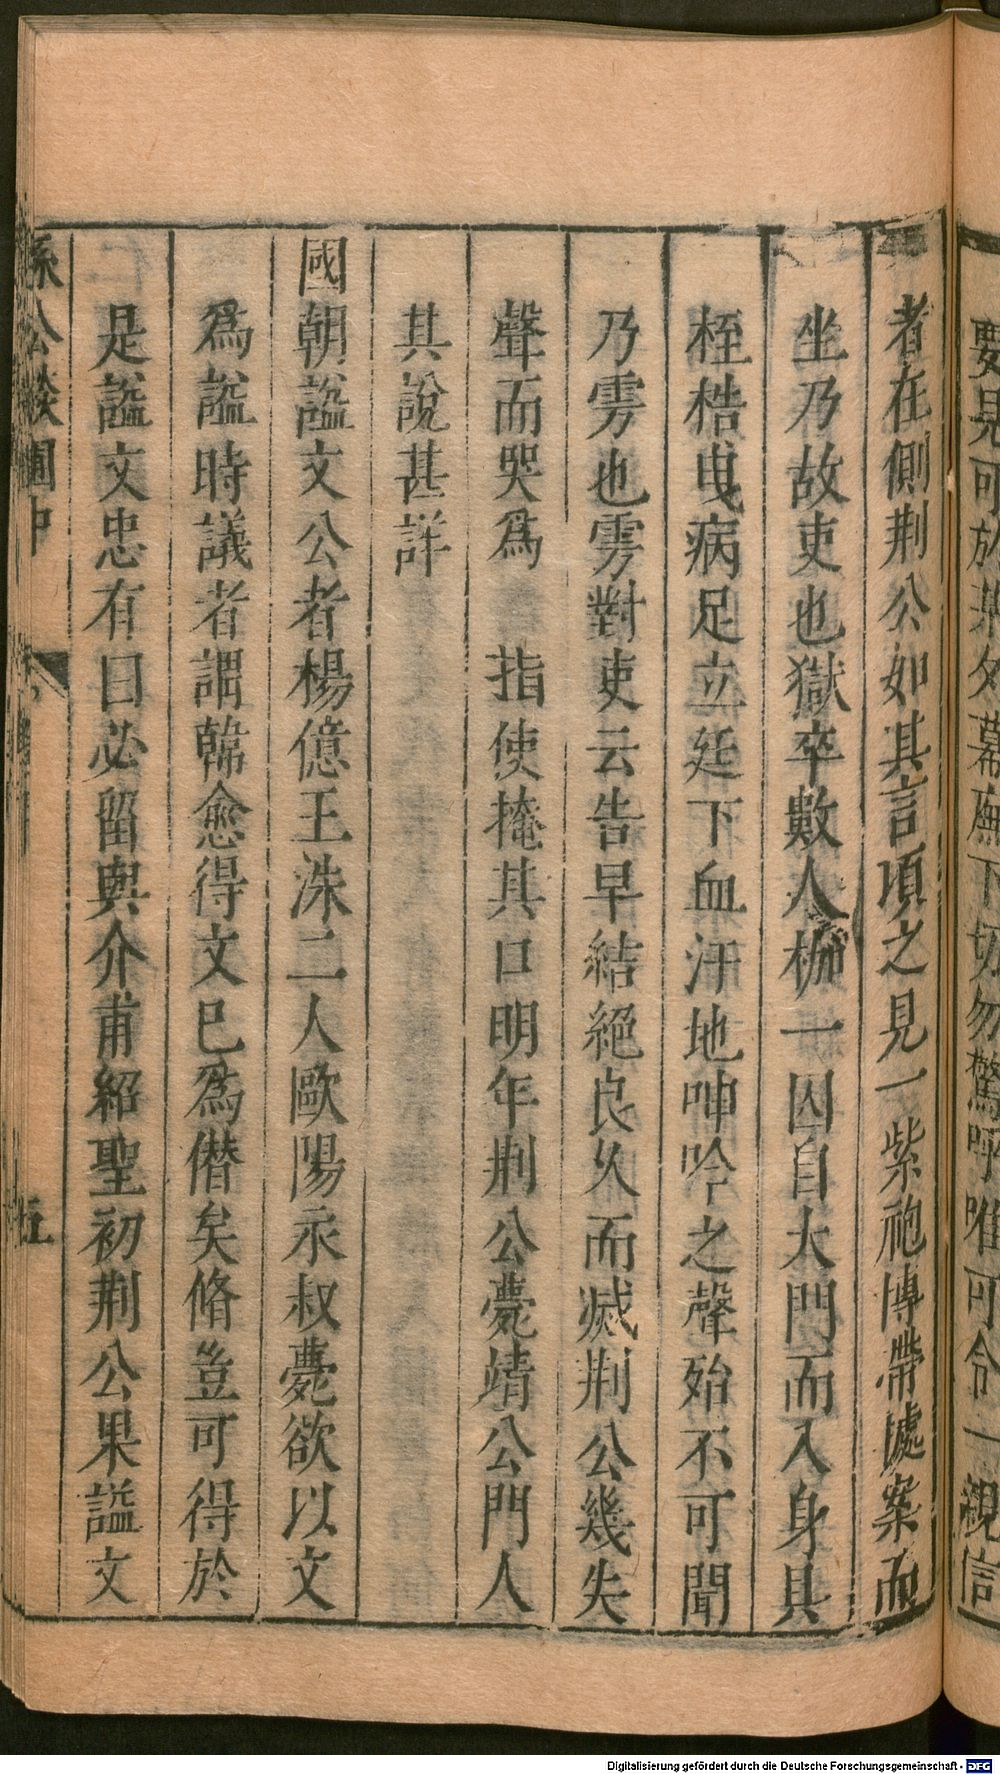 要見可於某夕幕廡下切勿驚呼唯可令一親信
者在側荆公如其言項之見一紫袍博帶據案而
坐乃故吏也獄卒數人枷一囚自大門而入身具
桎梏曳病足立廷下血汗地呻吟之聲殆不可聞
乃雱也雱對吏云告早結絕良久而滅荆公幾失
聲而哭爲 指使掩其口明年荆公薨靖公門人
其說甚詳
國朝謚文公者楊億王洙二人歐陽永叔薨欲以文
爲謚時議者謂韓愈得文已爲僭矣脩豈可得於
是謚文忠有曰必留與介甫紹聖初荆公果謚文
孫公談圃中 五
Digitalisierung gefördert durch die Deutsche Forschungsgemeinschaft - DFG